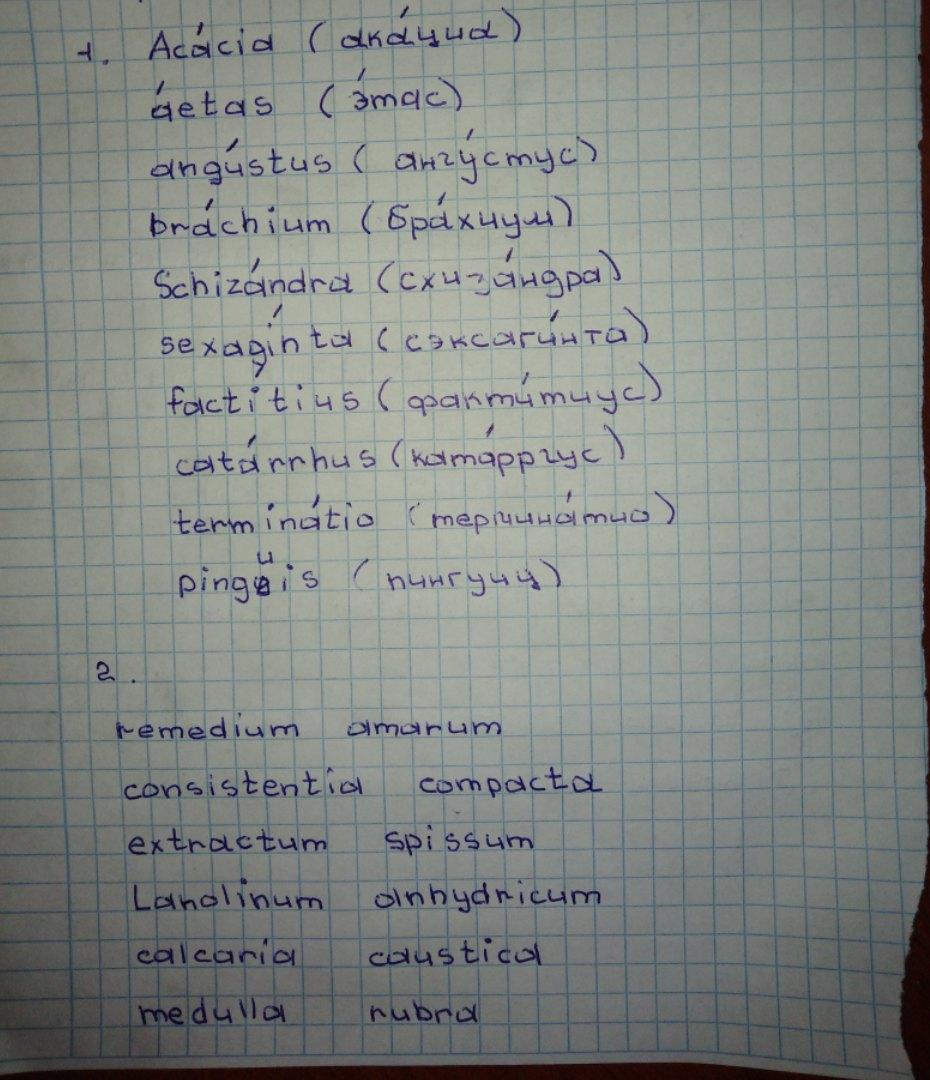 1. Acácia (ака́циа)
áetas (э́тас)
angústus (ангу́стус)
bráchium (бра́хиум)
Schizándra (схиза́ндра)
sexagínta (сэксаги́нта)
factítius (факти́тиус)
catárrhus (ката́рргус)
terminátio (термина́тио)
pinguis (пингуиц)
2.
remedium amarum
consistentia compacta
extractum spissum
Lanolinum anhydricum
calcaria caustica
medulla rubra